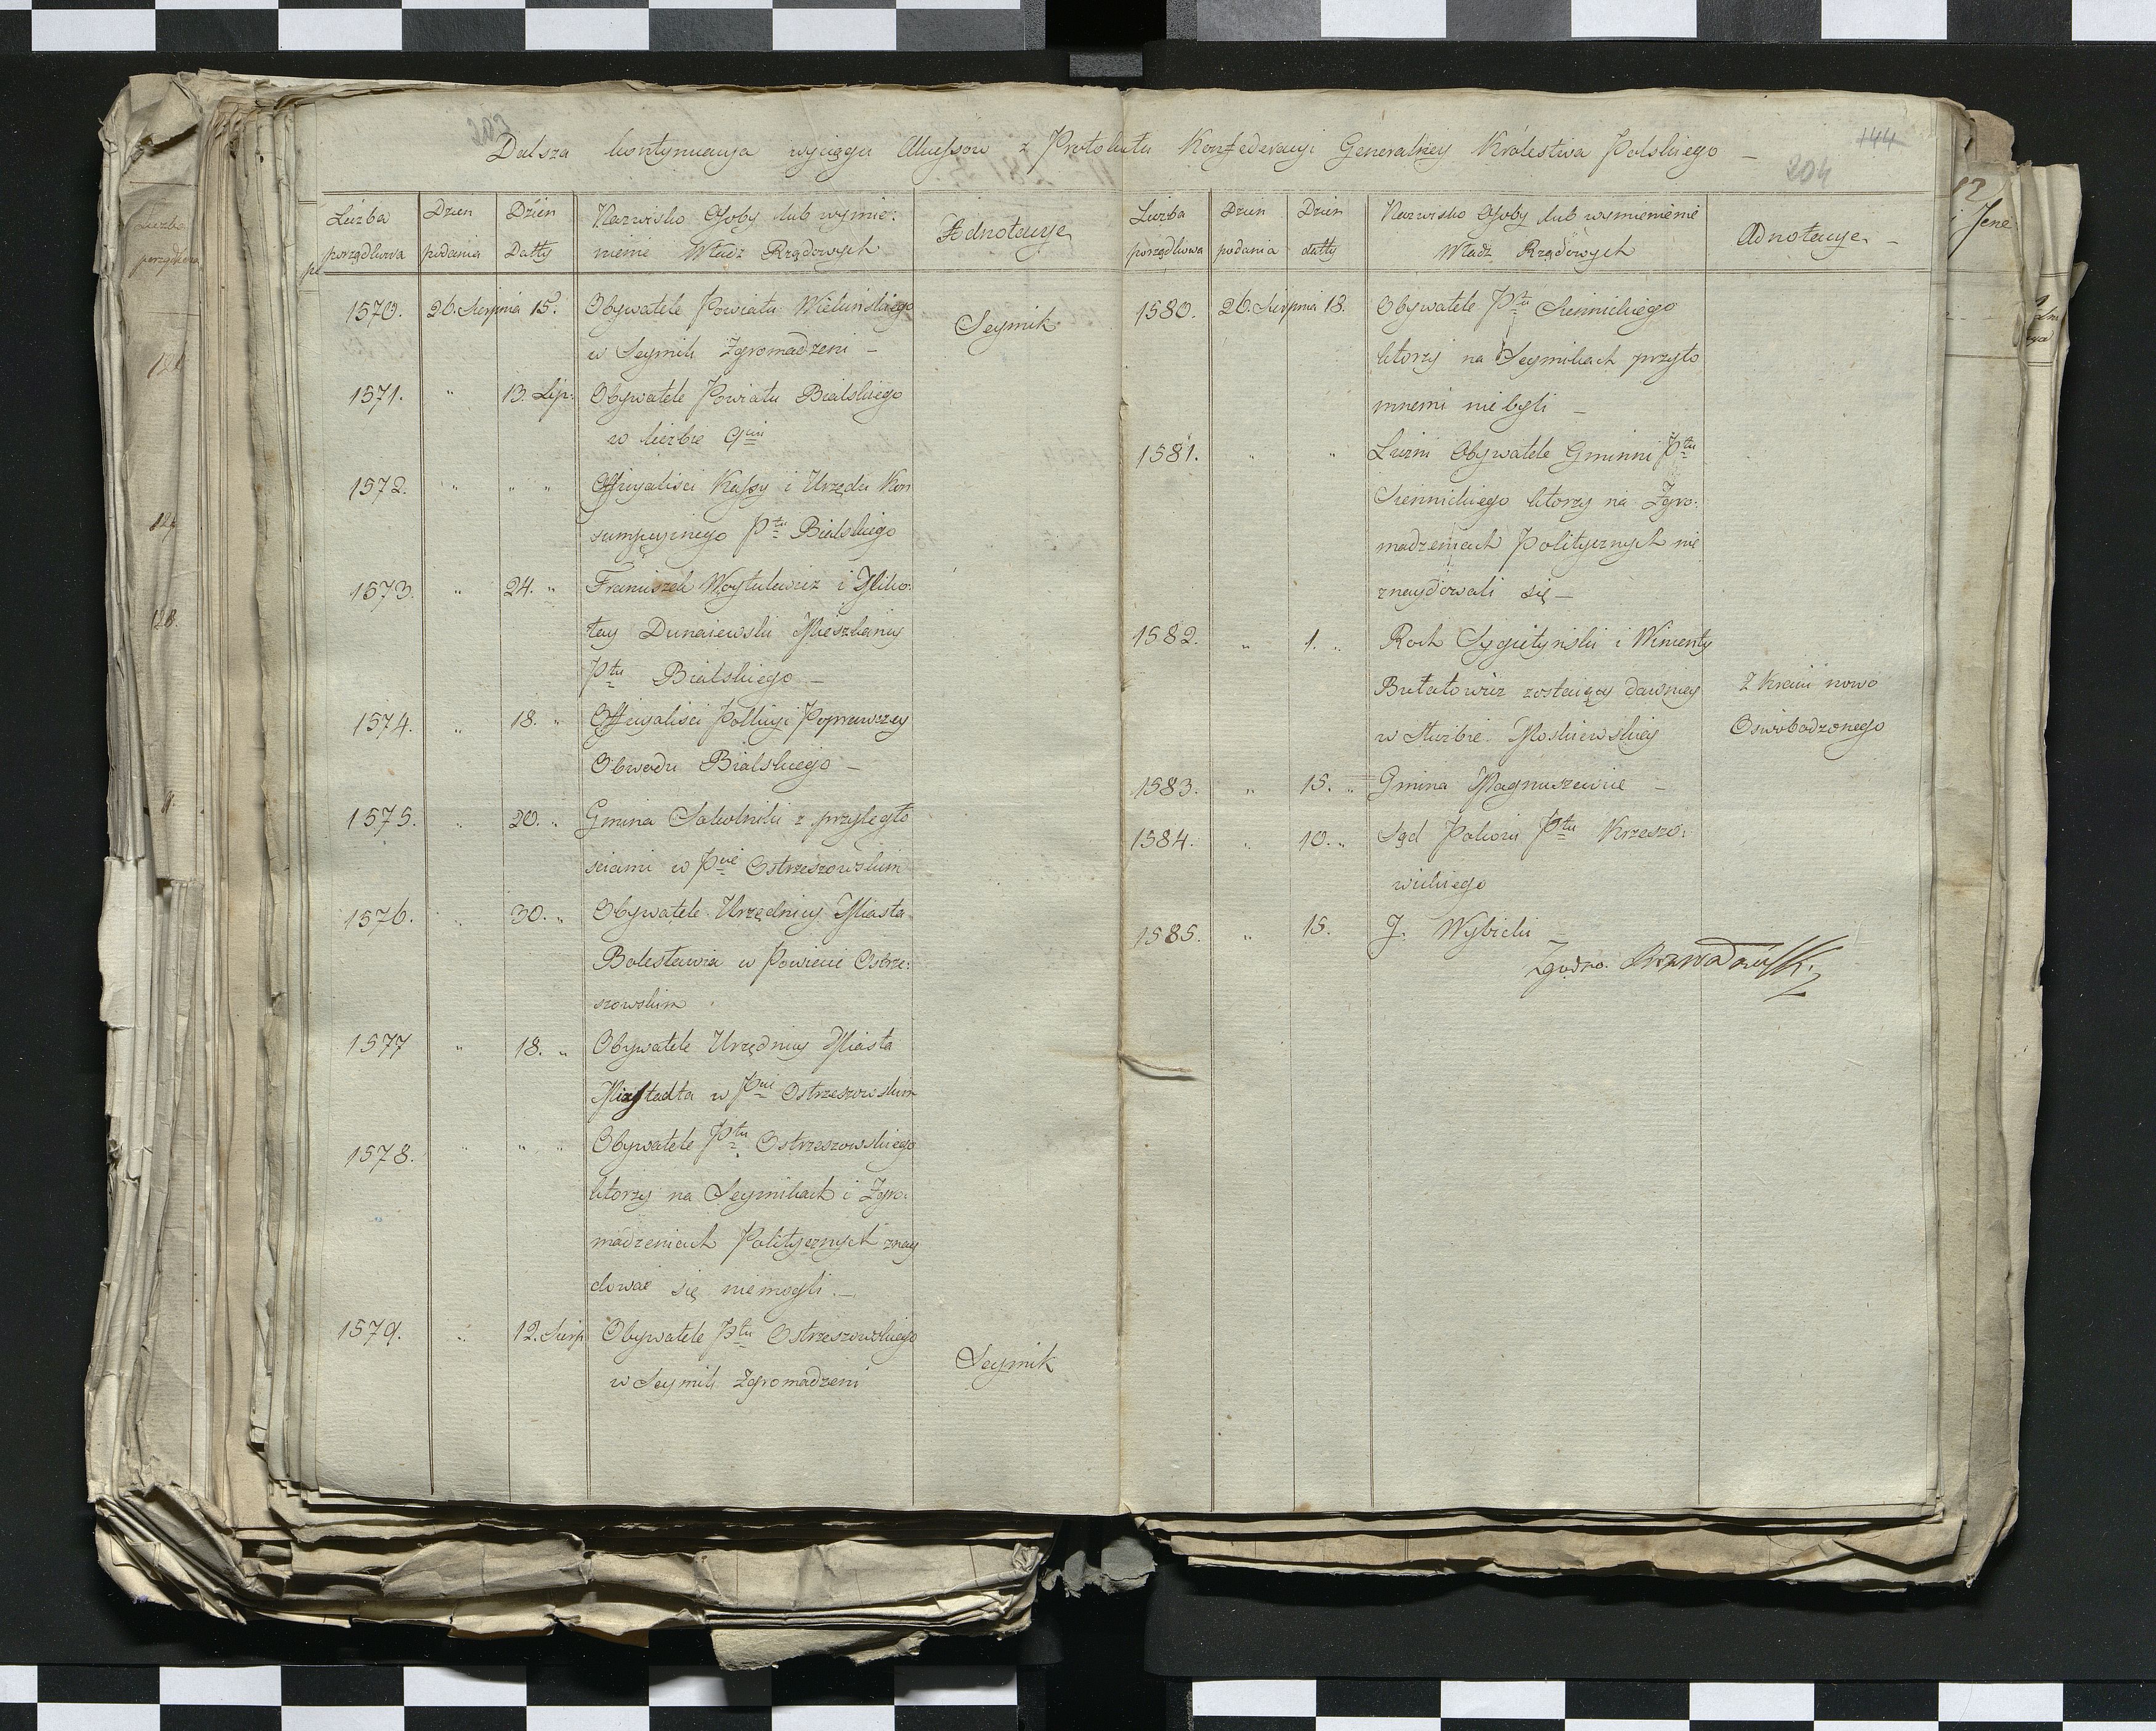 Dalsza kontynuacya wyciągu Akcessow z Protokułu Konfederacyi Generalney Królestwa Polskiego —
144
204
Liczba porządkowa
Dzien podania
Dzień Datty
Nazwisko Osoby lub wymie:
nienie Władz Rządowych
Adnotacye
1570. 26. Sierpnia 15. Obywatele Powiatu Wieluńskiego
w Seymik Zgromadzeni —
Seymik
1571. " 13. Lip: Obywatele Powiatu Bialskiego
w liczbie 9ciu
1572. " " " Officyaliści Kassy i Urzędu Kon
sumpcyinego Ptu Bialskiego
1573. " 24. " Franciszek Woytulewicz i Miko:
łay Dunaiewski Mieszkańcy
Ptu Bialskiego —
1574. " 18. " Officyaliści Pollicyi Poprawczey
Obwodu Bialskiego —
1575. " 20. " Gmina Sokolniki z przyległo
sciami w Pcie Ostrzeszowskim
1576. " 30. " Obywatele Urzędnicy Miasta
Bolesławia w Powiecie Ostrze:
szowskim
1577 " 18. " Obywatele Urzędnicy Miasta
Mixstadta w Pcie Ostrzeszowskim
1578. " " " Obywatele Ptu Ostrzeszowskiego
ktorzy na Seymikach i Zgro:
madzeniach Politycznych znay
dować się niemogli. —
1579. " 12. Sierp Obywatele Ptu Ostrzeszowskiego
w Seymik Zgromadzeni
Seymik
Liczba porządkowa
Dzien podania
Dzien datty
Nazwisko Osoby lub wymienienie
Władz Rządowych
Adnotacye. —
1580. 26. Sierpnia 18. Obywatele Ptu Siennickiego
ktorzy na Seymikach przyto
mnemi niebyli —
1581. " " Liczni Obywatele Gminni Ptu
Siennickiego ktorzy na Zgro:
madzeniach Politycznych nie
znaydowali się —
1582. " 1. " Roch Sygietyński i Wincenty
Butatowicz zostaiący dawniey
w Służbie Moskiewskiey
Z Kraiu nowo
Oswobodzonego
1583. " 15. " Gmina Magnuszewice —
1584. " 10. " Sąd Pokoiu Ptu Krzeszo:
wickiego
1585. " 15. J. Wybicki —
Zgodno.